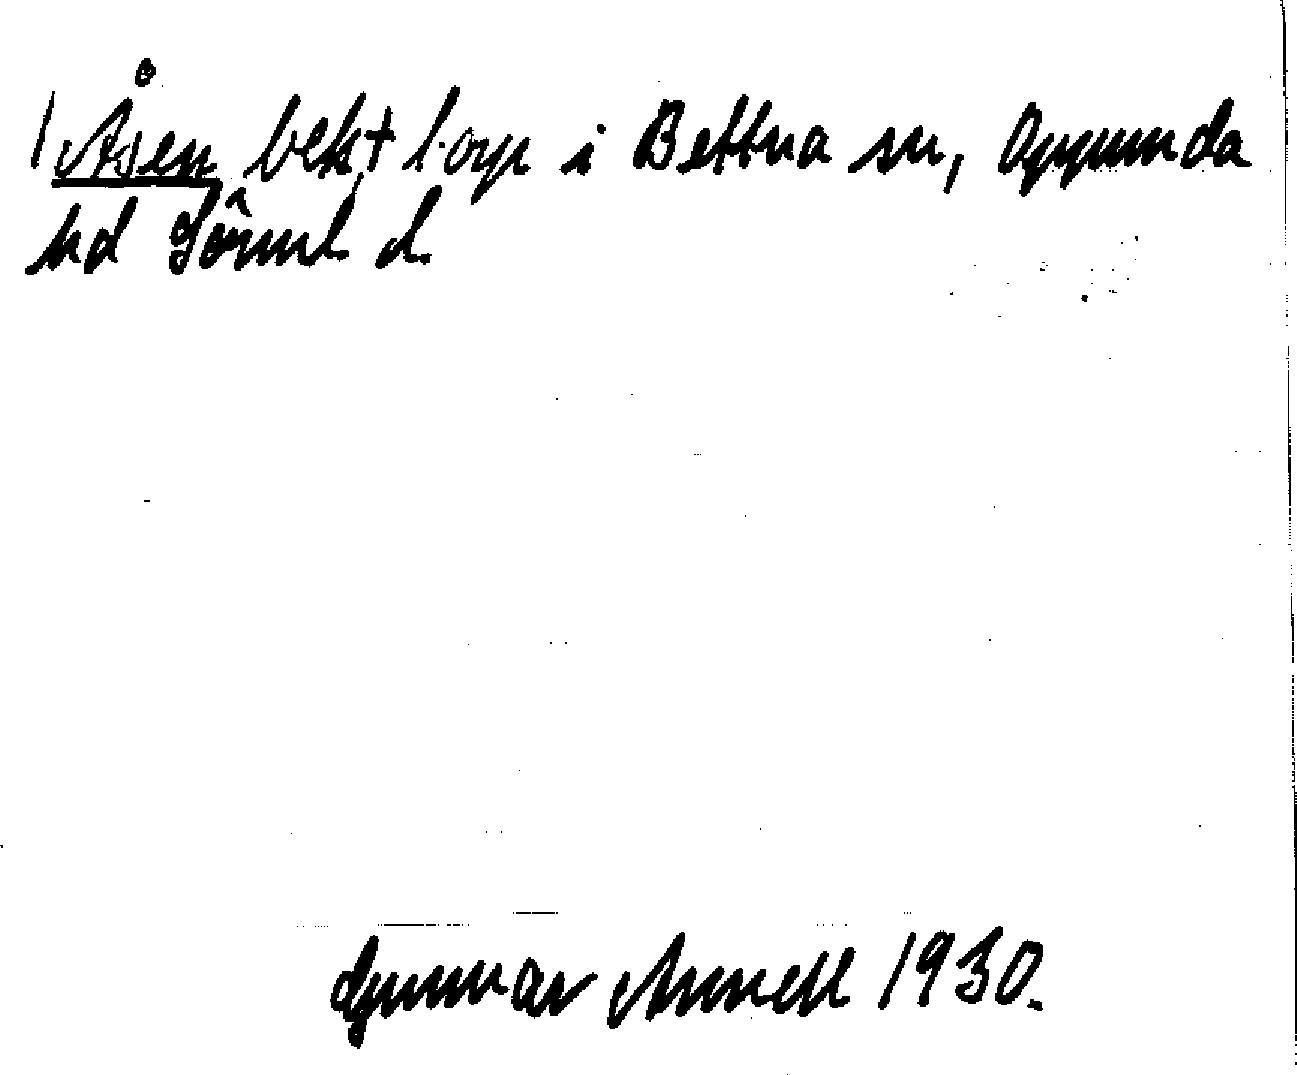 1 Åsen bekt torp i Bettna sn, Oppunda
hd Sörml. l.
Gunnar Annell 1930.